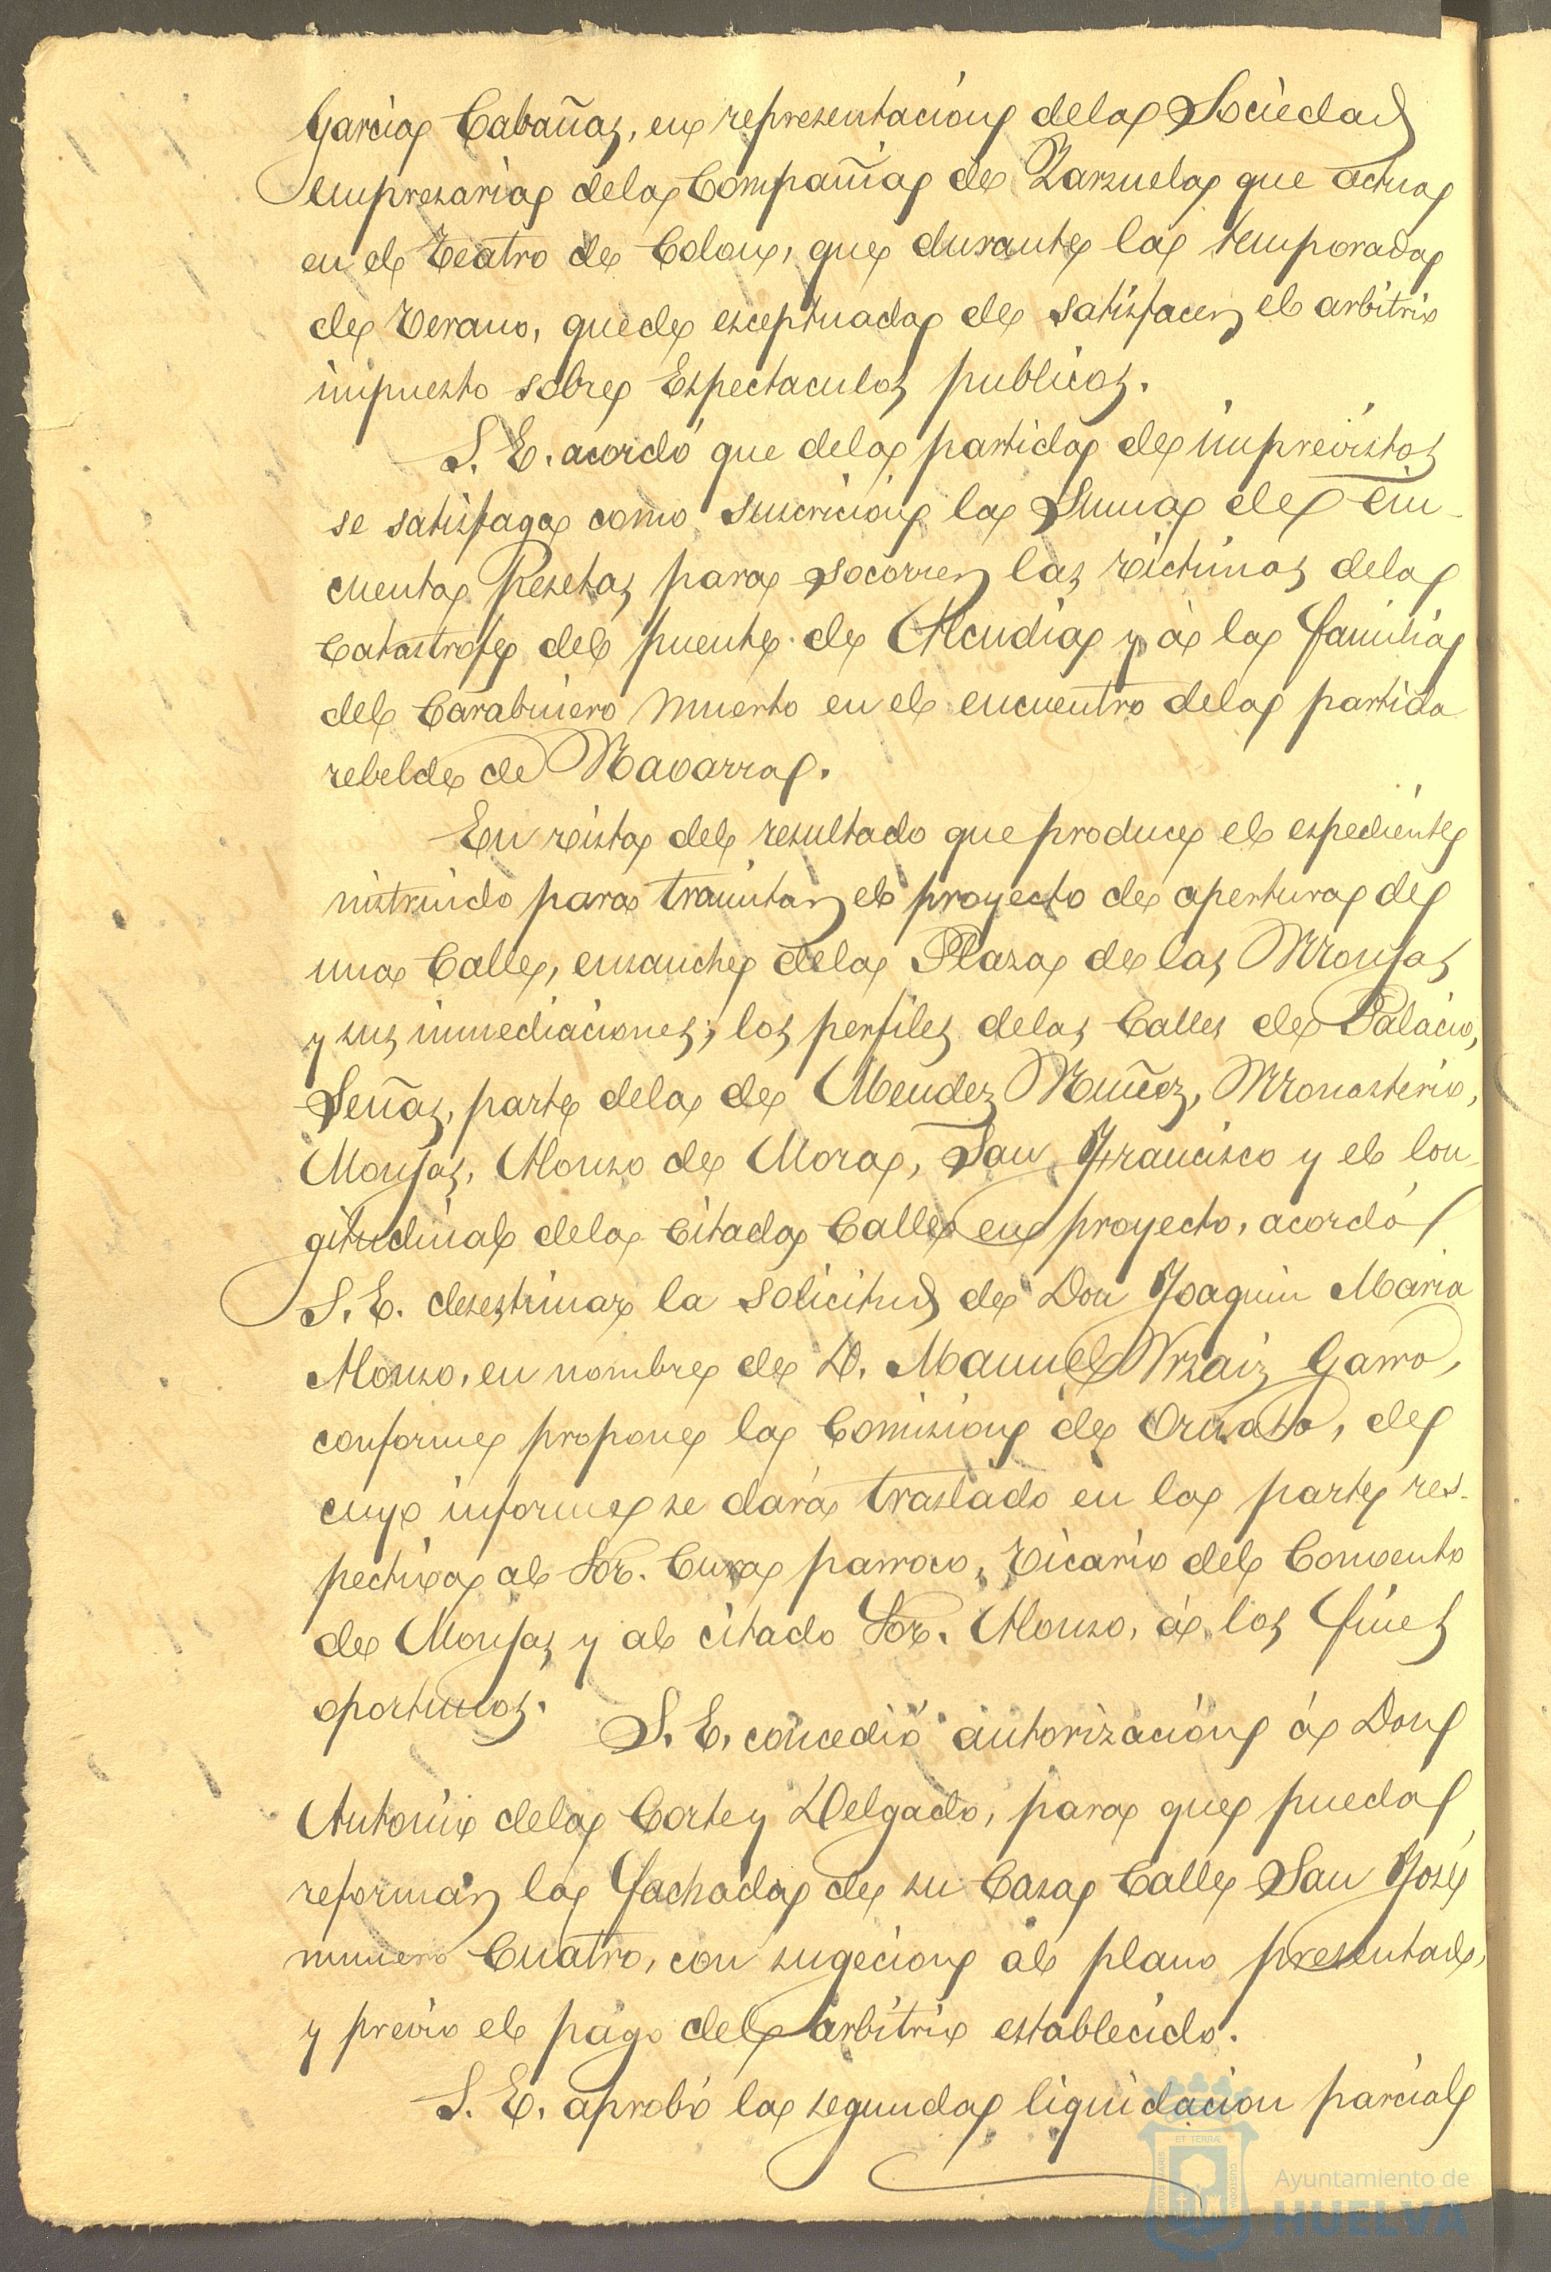 Garcia Cabañas, en representacion dela Sociedad
empresaria dela Compañia de Zarzuela que actua
en el Teatro de Colon, que durante la temporada
de Verano, quede esceptuada de satisfacer el arbitrio
impuesto sobre Espectaculos publicos.
S. E. acordó que dela partida de imprevistos
se satisfaga como suscricion la Suma de Cin-
cuenta Pesetas para socorrer las victimas dela
Catastrofe del puente de Alcudia y á la familia
del Carabinero muerto en el encuentro dela partida
rebelde de Navarra.
En vista del resultado que produce el espediente
instruido para tramitar el proyecto de apertura de
una Calle, ensanche dela Plaza de las Monjas
y sus inmediaciones; los perfiles delas Calles de Palacio,
Señas, parte dela de Mendez Nuñez, Monasterio,
Monjas, Alonso de Mora, San Francisco y el lon-
gitudinal dela citada Calle en proyecto, acordó
S. E. desestimar la solicitud de Don Joaquin Maria
Alonso, en nombre de D. Manuel Vrzaiz Garro,
conforme propone la Comision de Ornato, de
cuyo informe se dará traslado en la parte res-
pectiva al Sor. Cura parroco, Vicario del Convento
de Monjas y al citado Sor. Alonso, á los fines
oportunos.
S. E. concedió autorizacion á Don
Antonio dela Corte y Delgado, para que pueda
reformar la fachada de su Casa Calle San José
numero Cuatro, con sugecion al plano presentado,
y previo el pago del arbitrio establecido.
S. E. aprobó la segunda liquidacion parcial
Ayuntamiento de
HUELVA